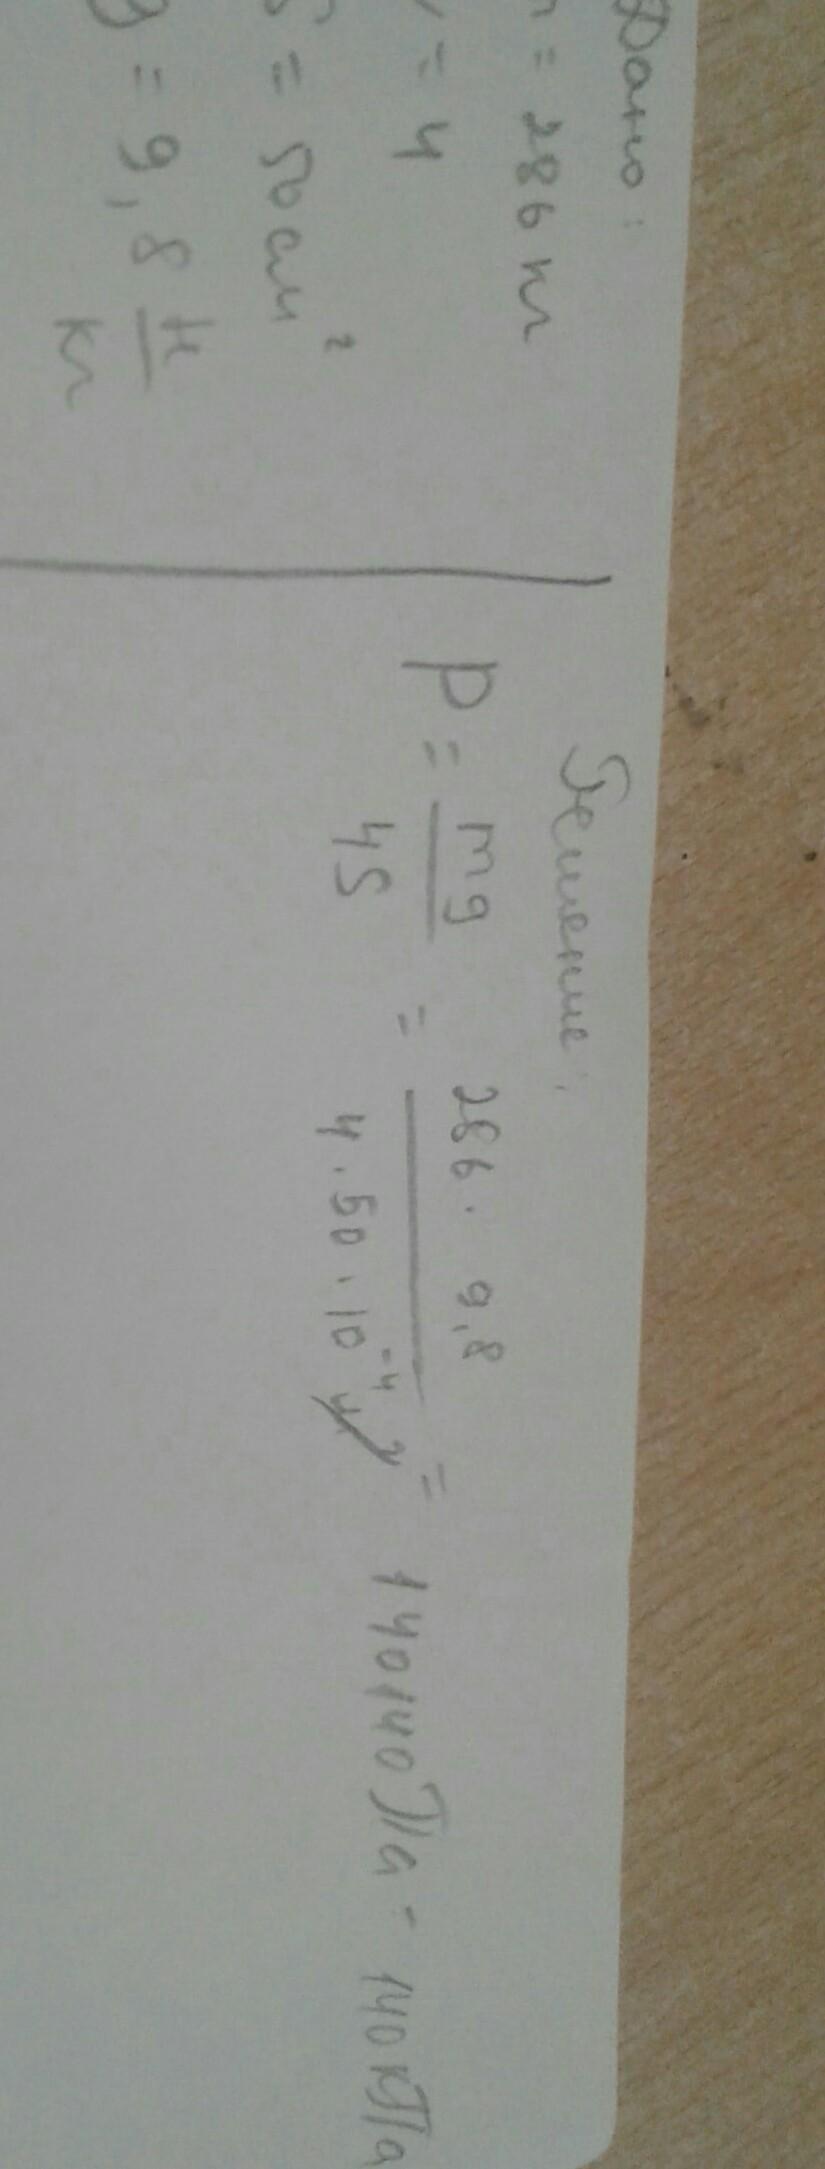 Дано:
m = 286 кг
N = 4
S = 50 см²
g = 9,8 Н/кг
Решение:
p = mg/4S = 286 · 9,8/4 · 50 · 10⁻⁴ м² = 140140 Па = 140 кПа